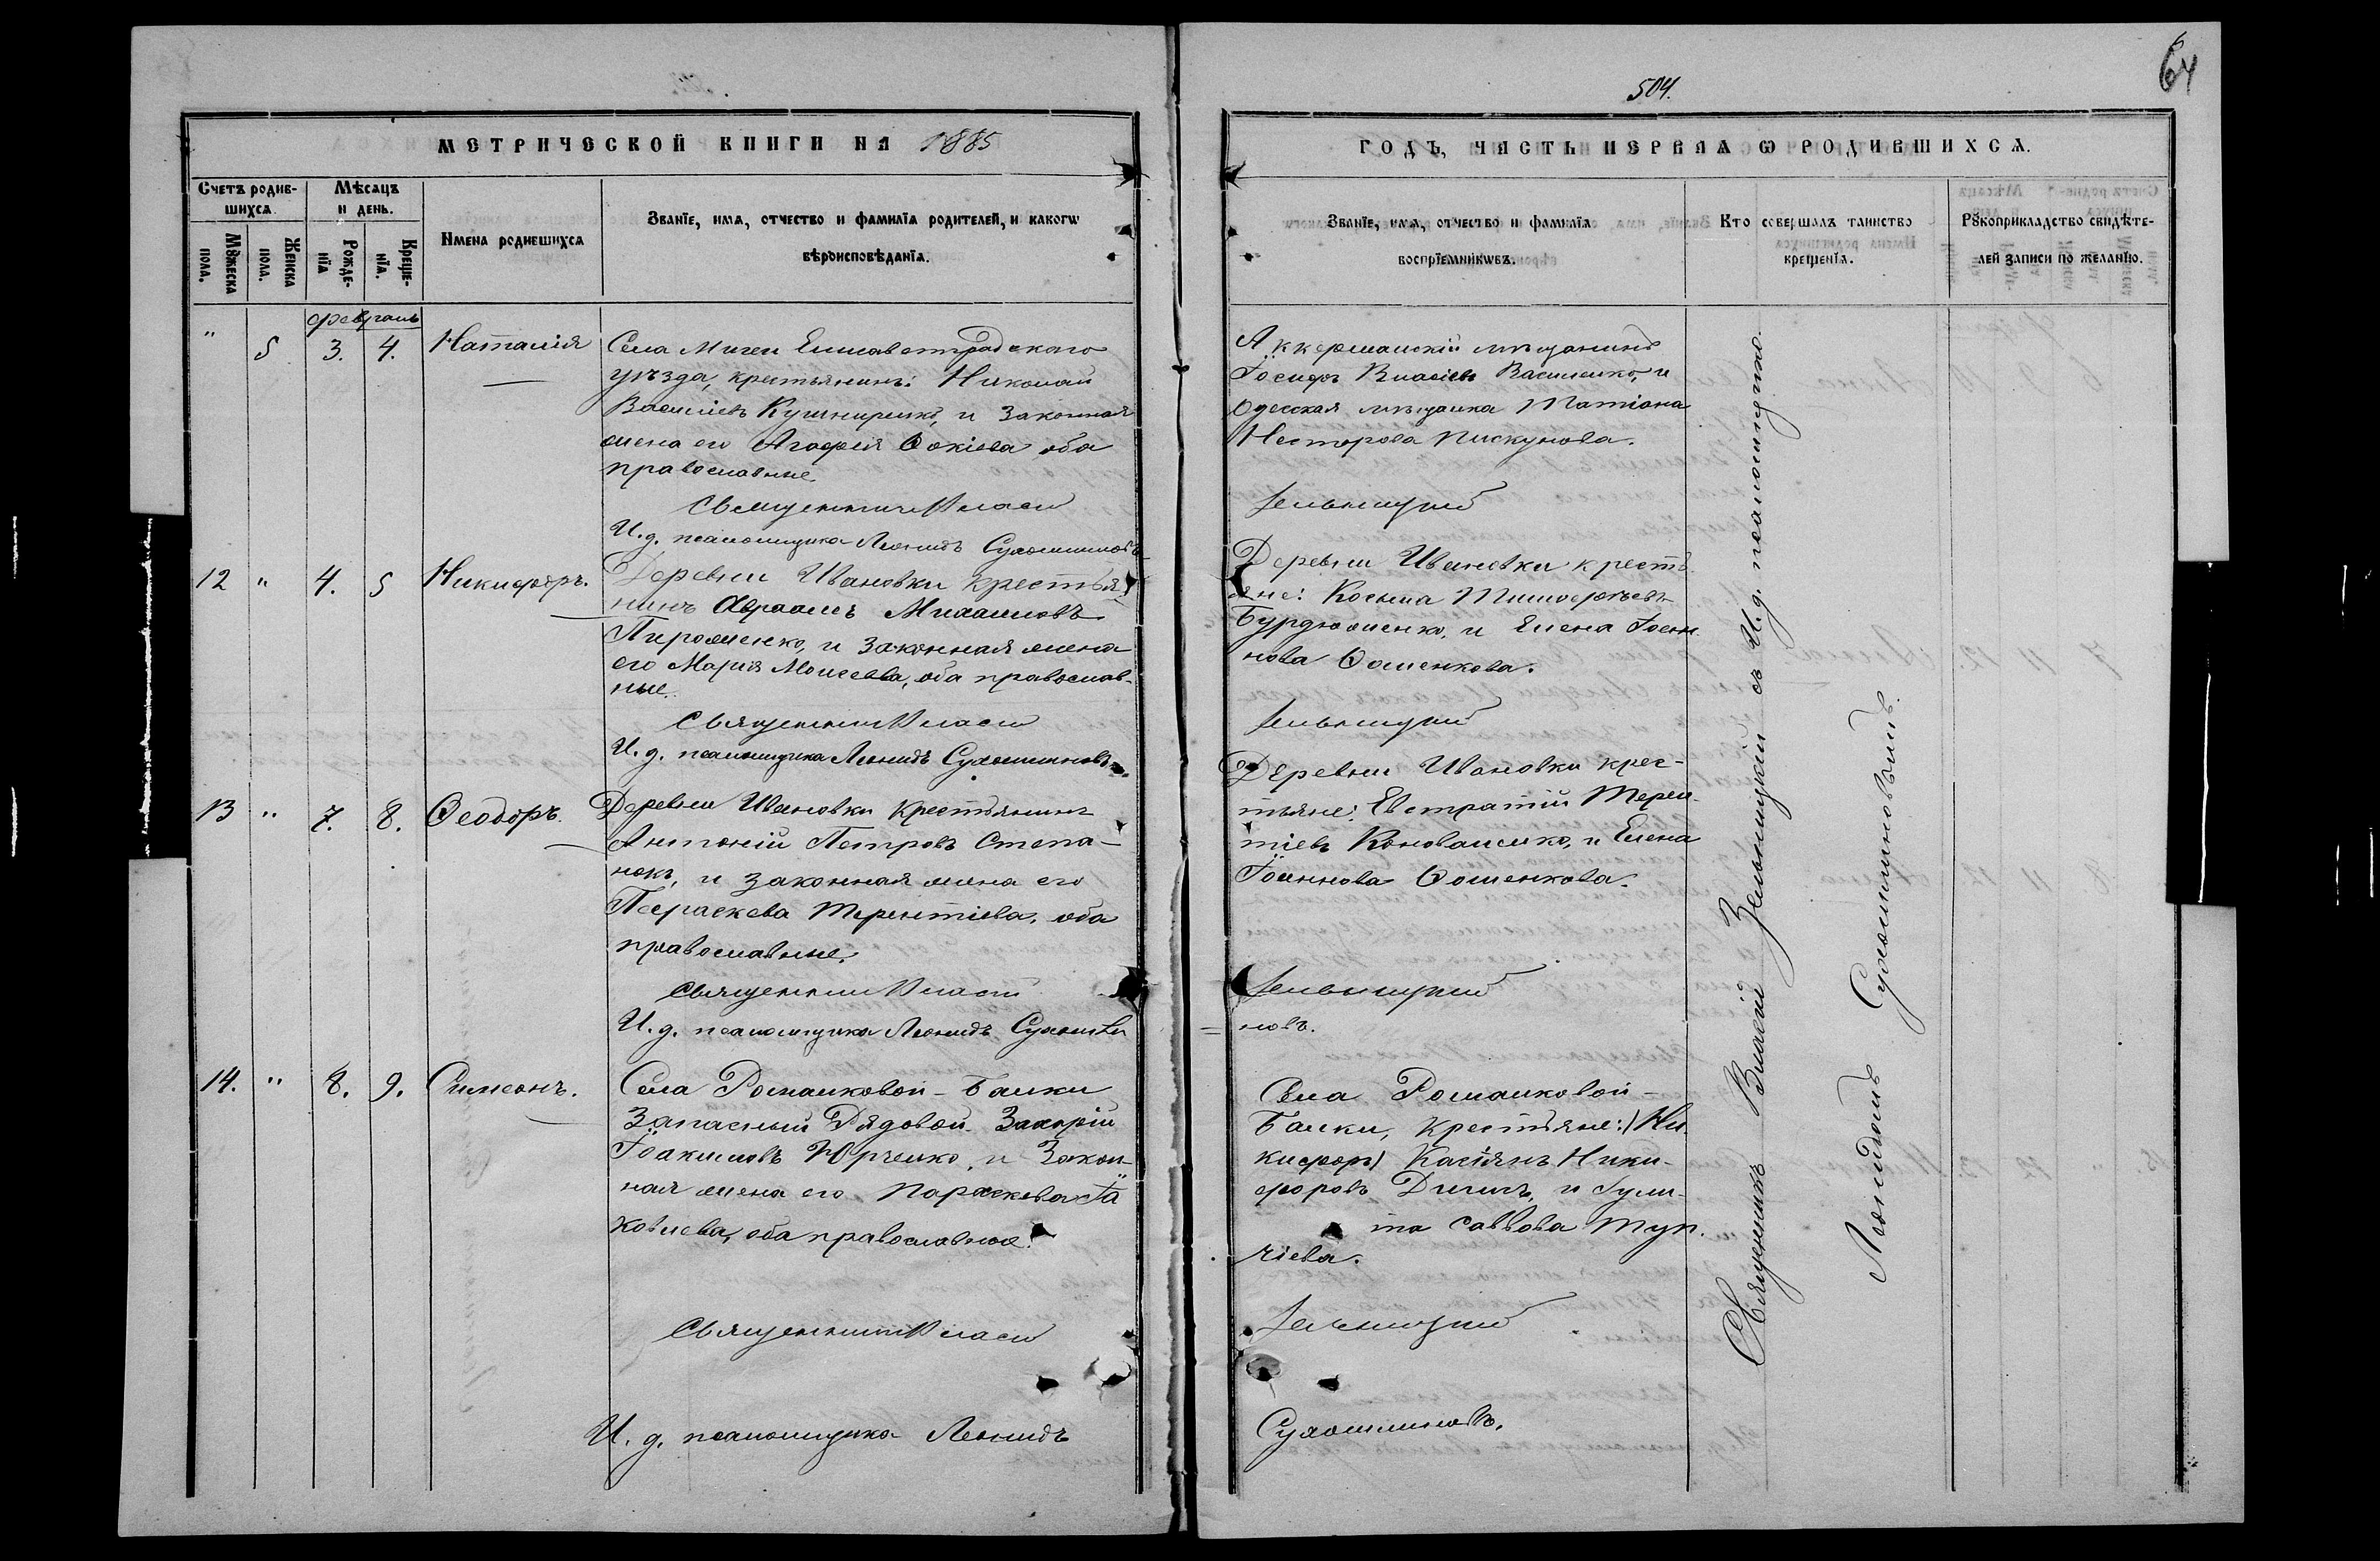 504.
64
МЕТРИЧЕСКОЙ КНИГИ НА 1885
ГОДЪ, ЧАСТЬ ПЕРВАЯ Ѡ РОДИВШИХСѦ.
Счетъ родив-
шихсѧ.
Мѣсѧцъ
и день.
Мꙋжеска
пола.
Женска
пола.
Рожде-
нїѧ
Креще-
нїѧ.
Имена родившихсѧ
Званїе, имѧ, отчество и фамилїѧ родителей, и какогѡ
вѣроисповѣданїѧ.
Званїе, имѧ, отчество и фамилїѧ
воспрїемникѡвъ.
Кто совершалъ таинство
крещенїѧ.
Рꙋкоприкладство свидѣте-
лей записи по желанїю.
февраль
" 5 3. 4. Наталія
Села Мигеи Елисаветградскаго
уѣзда, крестьянинъ: Николай
Василіевъ Кушниренко, и законная
жена его Агафія Ѳокіева оба
православные.
Священникъ Власій
И. д. псаломщика Леонидъ Сухомлиновъ
Аккерманскій мѣщанинъ
Іосифъ Власіевъ Василенко, и
Одесская мѣщанка Татіана
Несторова Пискунова.
Зельницкій
12 " 4. 5 Никифоръ.
Деревни Ивановки крестья-
нинъ Авраамъ Михаиловъ
Пироженко, и законная жена
его Марія Моисеева, оба православ-
ные.
Священникъ Власій
И. д. псаломщика Леонидъ Сухомлиновъ.
Деревни Ивановки крестъ-
яне: Косьма Тимофѣевъ
Бурдюженко, и Елена Іоан-
нова Ѳоменкова.
Зельницкій
13 " 7. 8. Ѳеодоръ.
Деревни Ивановки крестьянинъ
Антоній Петровъ Степа-
нокъ, и законная жена его
Параскева Терентіева, оба
православные.
Священникъ Власій
И. д. псаломщика Леонидъ Сухомли
Деревни Ивановки крес-
тьяне: Евстратій Терен-
тіевъ Коноваленко, и Елена
Іоаннова Ѳоменкова.
Зельницкій
= новъ.
14. " 8. 9. Симеонъ.
Села Романковой-Балки
Запасный Рядовой Захарій
Іоакимовъ Юрченко, и Закон-
ная жена его Параскева Іа
ковлева, оба православные.
Священникъ Власій
И. д. псаломщика Леонидъ
Села Романковой-
Балки, крестьяне: /Ни-
кифоръ/ Касіянъ Ники-
форовъ и Іули-
та Саввова Туп-
чіева.
Зельницкій
Сухомлиновъ.
Священникъ Власій Зельницкій съ И. д. псаломщика.
Леонидомъ Сухомлиновымъ.